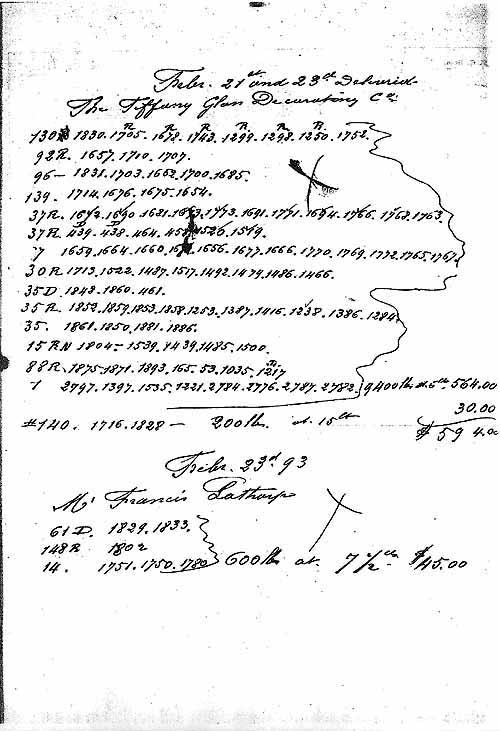 Febr. 21st and 23rd Delivered
The Tiffany Glass Decorating Co.
130 1830. 1705. 1678. 1743. 1299. 1298. 1250. 1752.
92R. 1657. 1700. 1707.
96 – 1831. 1703. 1662. 1700. 1685.
139. 1714. 1676. 1675. 1654.
37R. 1672. 1690 1621. 1773. 1691. 1771. 1694. 1766. 1763. 1763.
37R. 439. 438. 464. 1526. 1519.
7 1659. 1664. 1660. 1656. 1677. 1666. 1770. 1769. 1772. 1765. 1767.
30R 1713. 1522. 1487. 1517. 1492. 1479. 1486. 1466.
35D. 1848. 1860. 461.
35R. 1852. 1859. 1853. 1858. 1253. 1387. 1416. 1238. 1386. 1284.
35. 1861. 1250. 1881. 1886.
15RN 1804 – 1539. 1439. 1485. 1500.
88R. 1875. 1871. 1893. 165. 53. 1035. 1217
1 2797. 1397. 1535. 1221. 2784. 2776. 2787. 2782. 9400 lbs at 6cts 564.00
30.00
#140. 1716. 1828 – 200 lbs. at 15cts
$594.00
Febr. 23rd 93
Mr Francis Lathrop
61D. 1829. 1833.
148R 1802
14. 1751. 1750. 1780 600 lbs at 7 1/2 cts $45.00